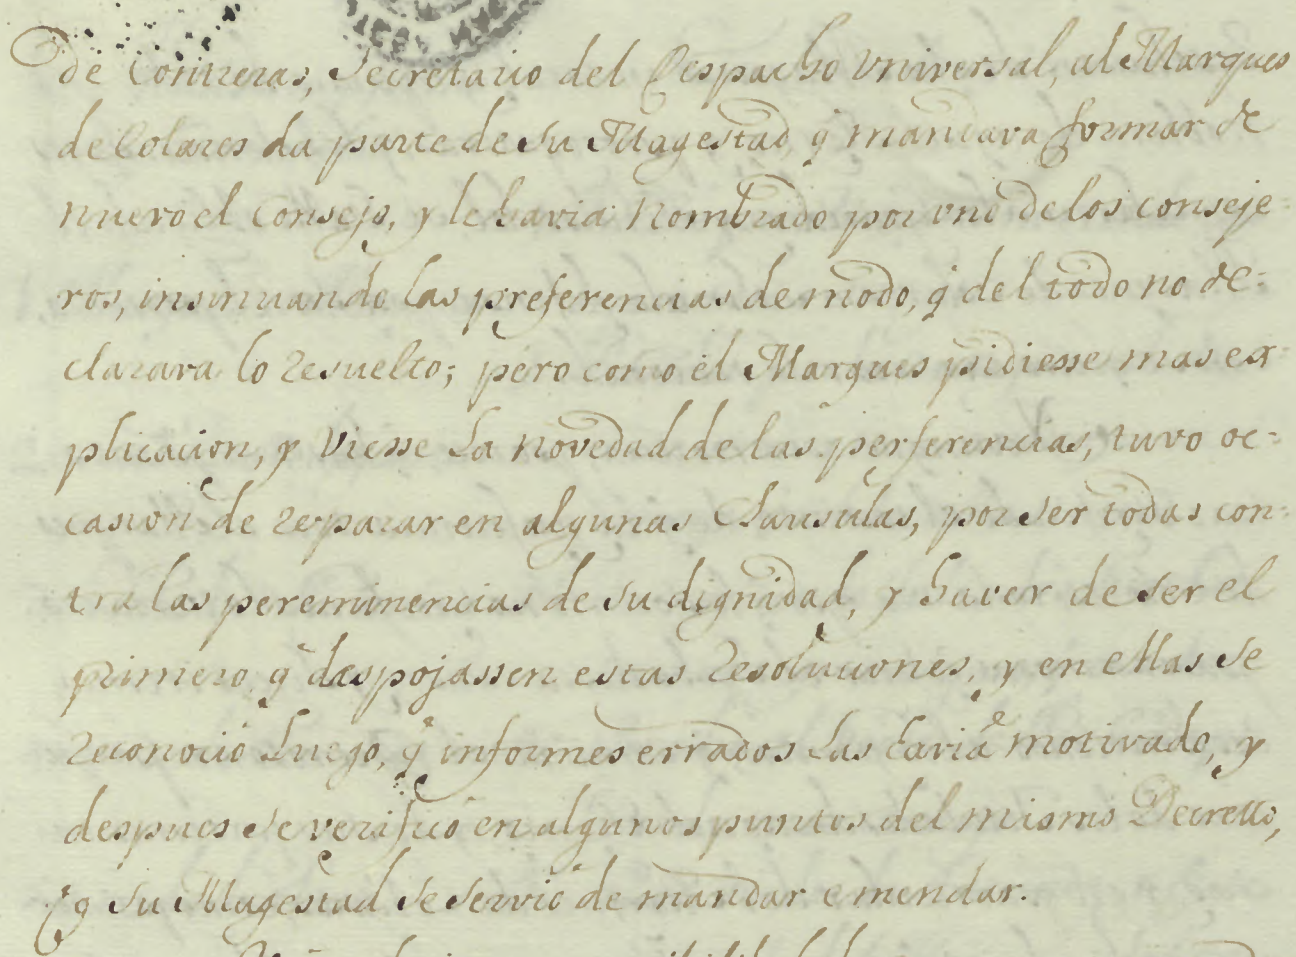 de Contreras, Secretario del Despacho Vniversal, al Marques
de Colares da parte de Su Magestad, q̃ mandava formar de
nuevo el Consejo, y le havia nombrado por vno de los conseje-
ros, insinuando las preferencias de modo, q̃ del todo no de-
clarara lo resuelto; pero como el Marques pidiesse mas ex
plicacion, y viesse la novedad de las perferencias, tuvo oc-
casion de reparar en algunas clausulas, por ser todas con-
tra las pereminencias de su dignidad, y haver de ser el
primero q̃ despojassen estas resoluciones, y en ellas se
reconoció luego, q̃ informes errados las haviã motivado, y
despues se verificó en algunos puntos del mismo Decretto,
q̃ Su Magestad se servió de mandar emendar.